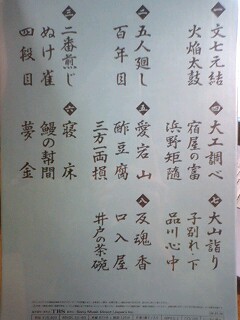 一 文七元結
火焔太鼓
二 五人廻し
百年目
三 二番煎じ
ぬけ雀
四段目
四 大工調べ
宿屋の富
浜野矩随
五 愛宕山
酢豆腐
三方一両損
六 寝床
鰻の幇間
夢金
七 大山詣り
子別れ・下
品川心中
八 反魂香
口入屋
井戸の茶碗